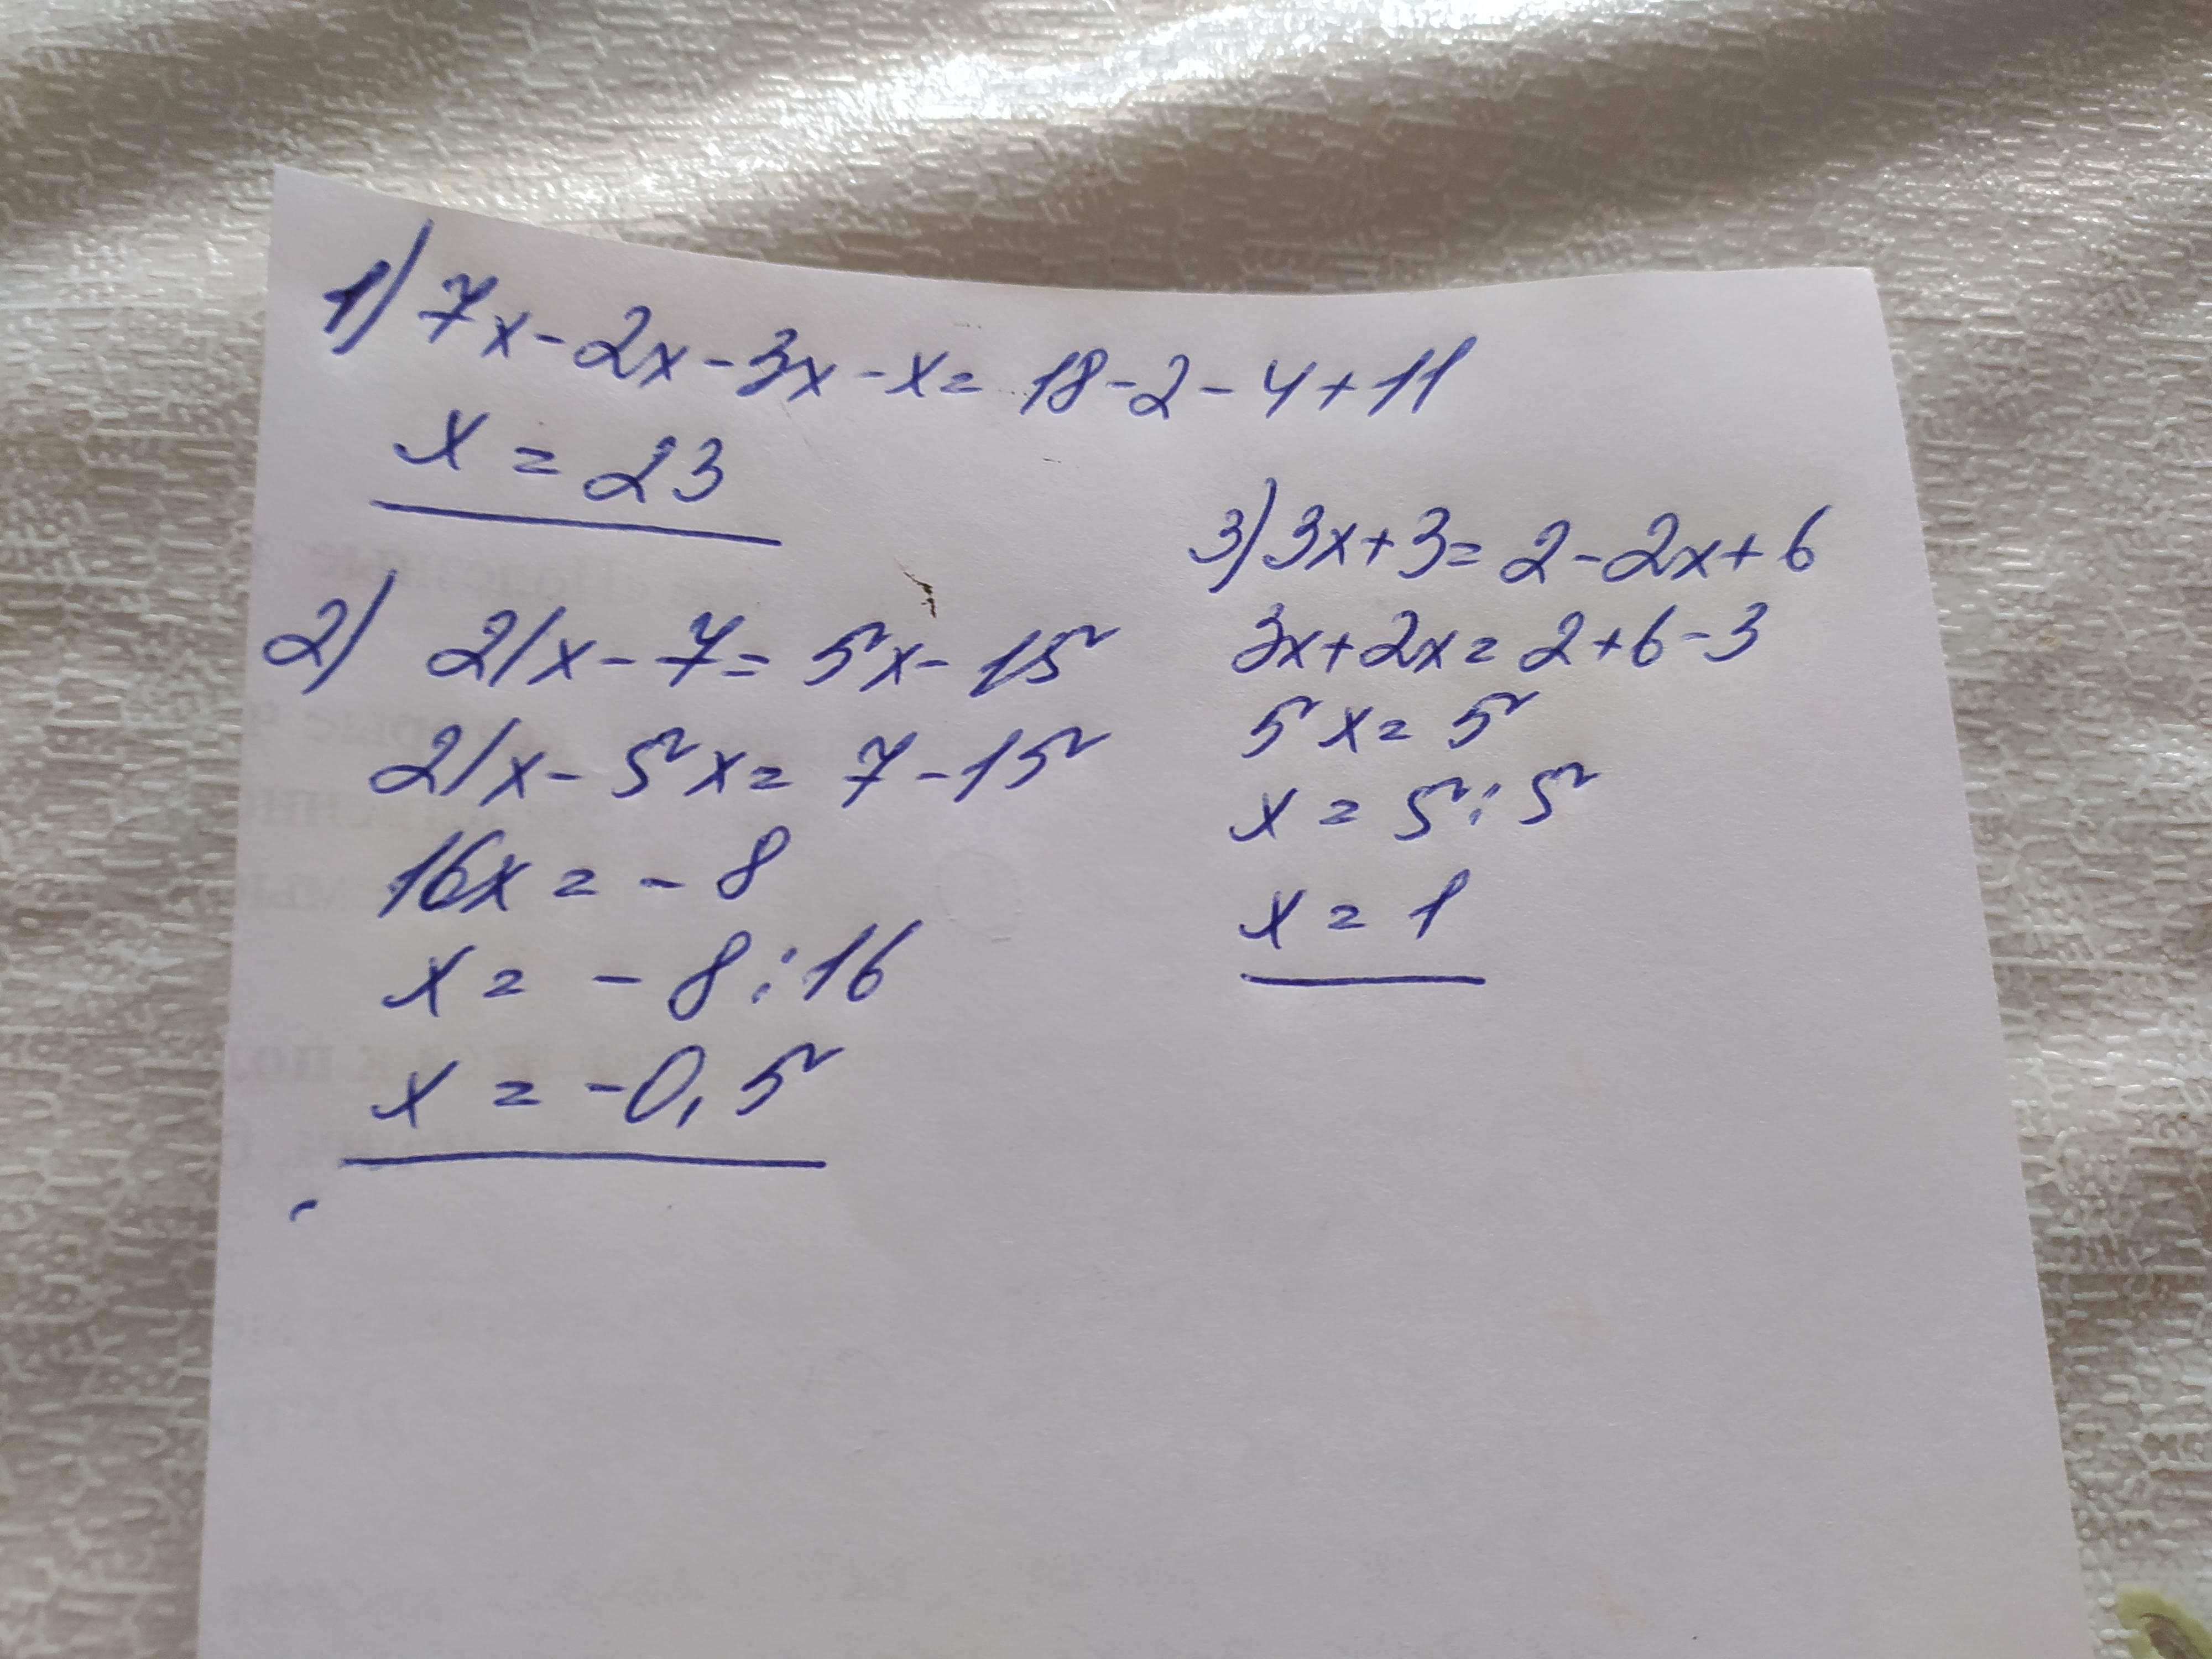 1) 7x-2x-3x-x=18-2-4+11
x=23
2) 21x-7=5x-15
21x-5x=7-15
16x=-8
x=-8:16
x=-0,5
3) 3x+3=2-2x+6
3x+2x=2+6-3
5x=5
x=5:5
x=1